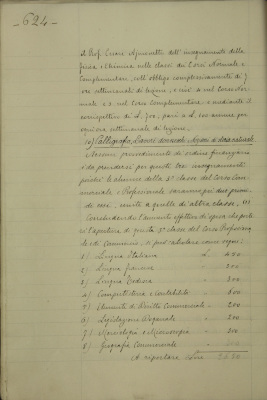 - 624 -
al Prof. Cesare dell'insegnamento della
fisica e chimica nelle classi dei Corsi Normale e
Complementare, coll'obbligo complessivamente di 7
ore settimanali di lezione, e cioè 4 nel Corso Nor-
male e 3 nel Corso Complementare, e mediante il
corrispettivo di L. 700, pari a L. 100 annue per
ogni ora settimanale di lezione.
10) Calligrafia, Lavori donneschi, Nozioni di storia naturale
Nessun provvedimento di ordine finanziario
è da prendersi per questi tre insegnamenti
poiché le alunne della 3ª classe del Corso Com-
merciale e Professionale saranno per due primi
di essi, unite a quelle di altra classe.
Considerando l'aumento effettivo di spesa che porte-
rà l'apertura di questa 3ª classe del Corso Professiona-
le di Commercio, si può calcolare come segue:
1) Lingua Italiana L. 400
2) Lingua francese " 300
3) Lingua Tedesca " 300
4) Computisteria e Contabilità " 600
5) Elementi di Diritto Commerciale " 200
6) Legislazione Doganale " 200
7) Merciologia e Microscopia " 300
8) Geografia Commerciale "
A riportare Lire